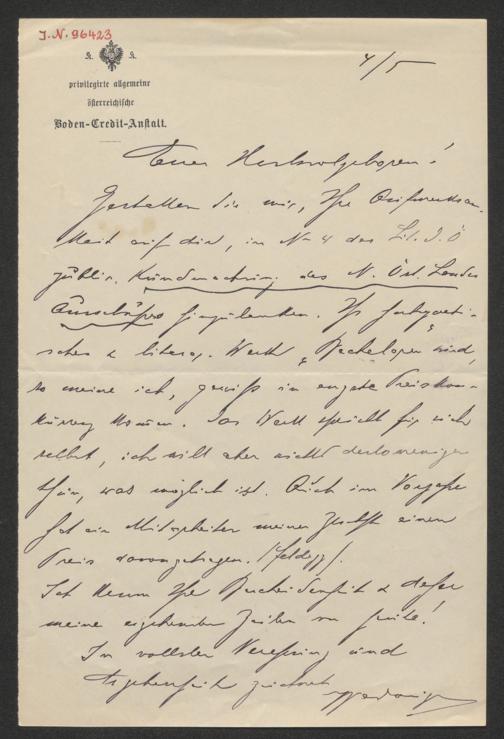 J.N. 96423
K. K.
privilegirte allgemeine
österreichische
Boden-Credit-Anstalt.
4/5
Euer Hochwolgeboren!
Gestatten Sie mir, Ihre Aufmerksam-
keit auf die, in No 4 des
public. Kundmachung des N. Öst. Landes
Ausschußes hinzulenken. Ihr
sches & literar. Werk wird,
so meine ich, gewiss in engste Preiskon-
kurrenz kommen. Das Werk spricht für sich
selbst, ich will aber nichts destoweniger
thun, was möglich ist. Auch im Vorjahre
hat ein Mitarbeiter meiner einen
Preis davongetragen.
Ich kenne Ihre Bescheidenheit & daher
meine ergebenen Zeilen von heute!
In vollster Verehrung und
Ergebenheit zeichnet